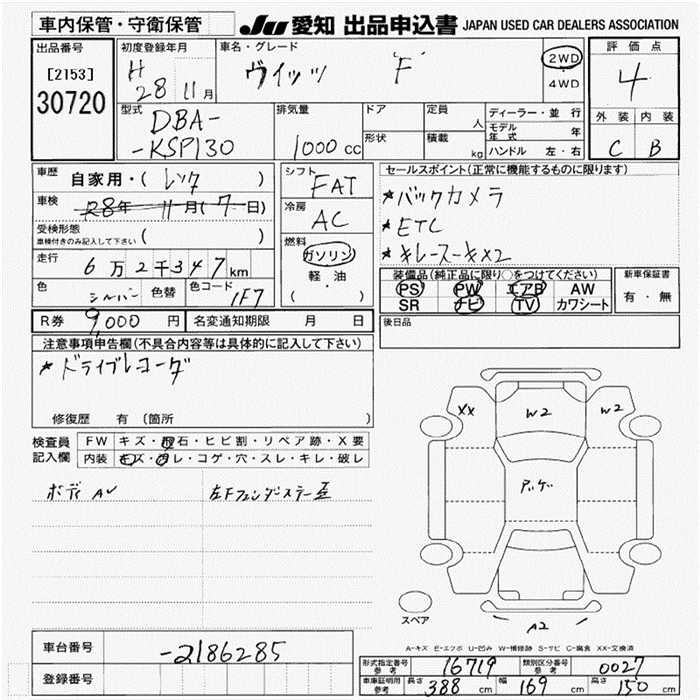 車内保管・守衛保管
JU 愛知 出品申込書 JAPAN USED CAR DEALERS ASSOCIATION
出品番号
[2153]
30720
初度登録年月
H 28 11月
車名・グレード
ヴィッツ "F"
2WD
4WD
評価点
4
外装 内装
C B
型式
DBA-
-KSP130
排気量
1000cc
ドア
形状
定員 人
積載 kg
ディーラー・並行
モデル年式 年
ハンドル 左・右
車歴 自家用・(レンタ)
車検 R8年 11月(7日)
受検形態
車検付きのみ記入して下さい ( )
走行 6万2千347km
色 シルバー 色替 色コード 1F7
シフト FAT
冷房 AC
燃料
ガソリン
軽・油
( )
セールスポイント(正常に機能するものに限ります)
*バックカメラ
*ETC
*キレースーキ×2
装備品(純正品に限り○をつけてください)
PS PW エアB AW
SR ナビ TV カワシート
新車保証書
有・無
R券 9,000円
名変通知期限 月 日
後日品
注意事項申告欄(不具合内容等は具体的に記入して下さい)
*ドライブレコーダ
修復歴 有 (箇所 )
検査員記入欄
FW キズ・飛石・ヒビ割・リペア跡・X要
内装 キズ・ヨゴレ・コゲ・穴・スレ・キレ・破レ
ボディAU
左Fフェンダステー歪
XX W2 W2
A2
スペア
A-キズ E-エクボ U-凹み W-補修跡 S-サビ C-腐食 XX-交換済
車台番号 -2186285
登録番号
形式指定番号 参考 16719
類別区分番号 参考 0027
車庫証明用 参考 長さ 388cm 幅 169cm 高さ 150cm